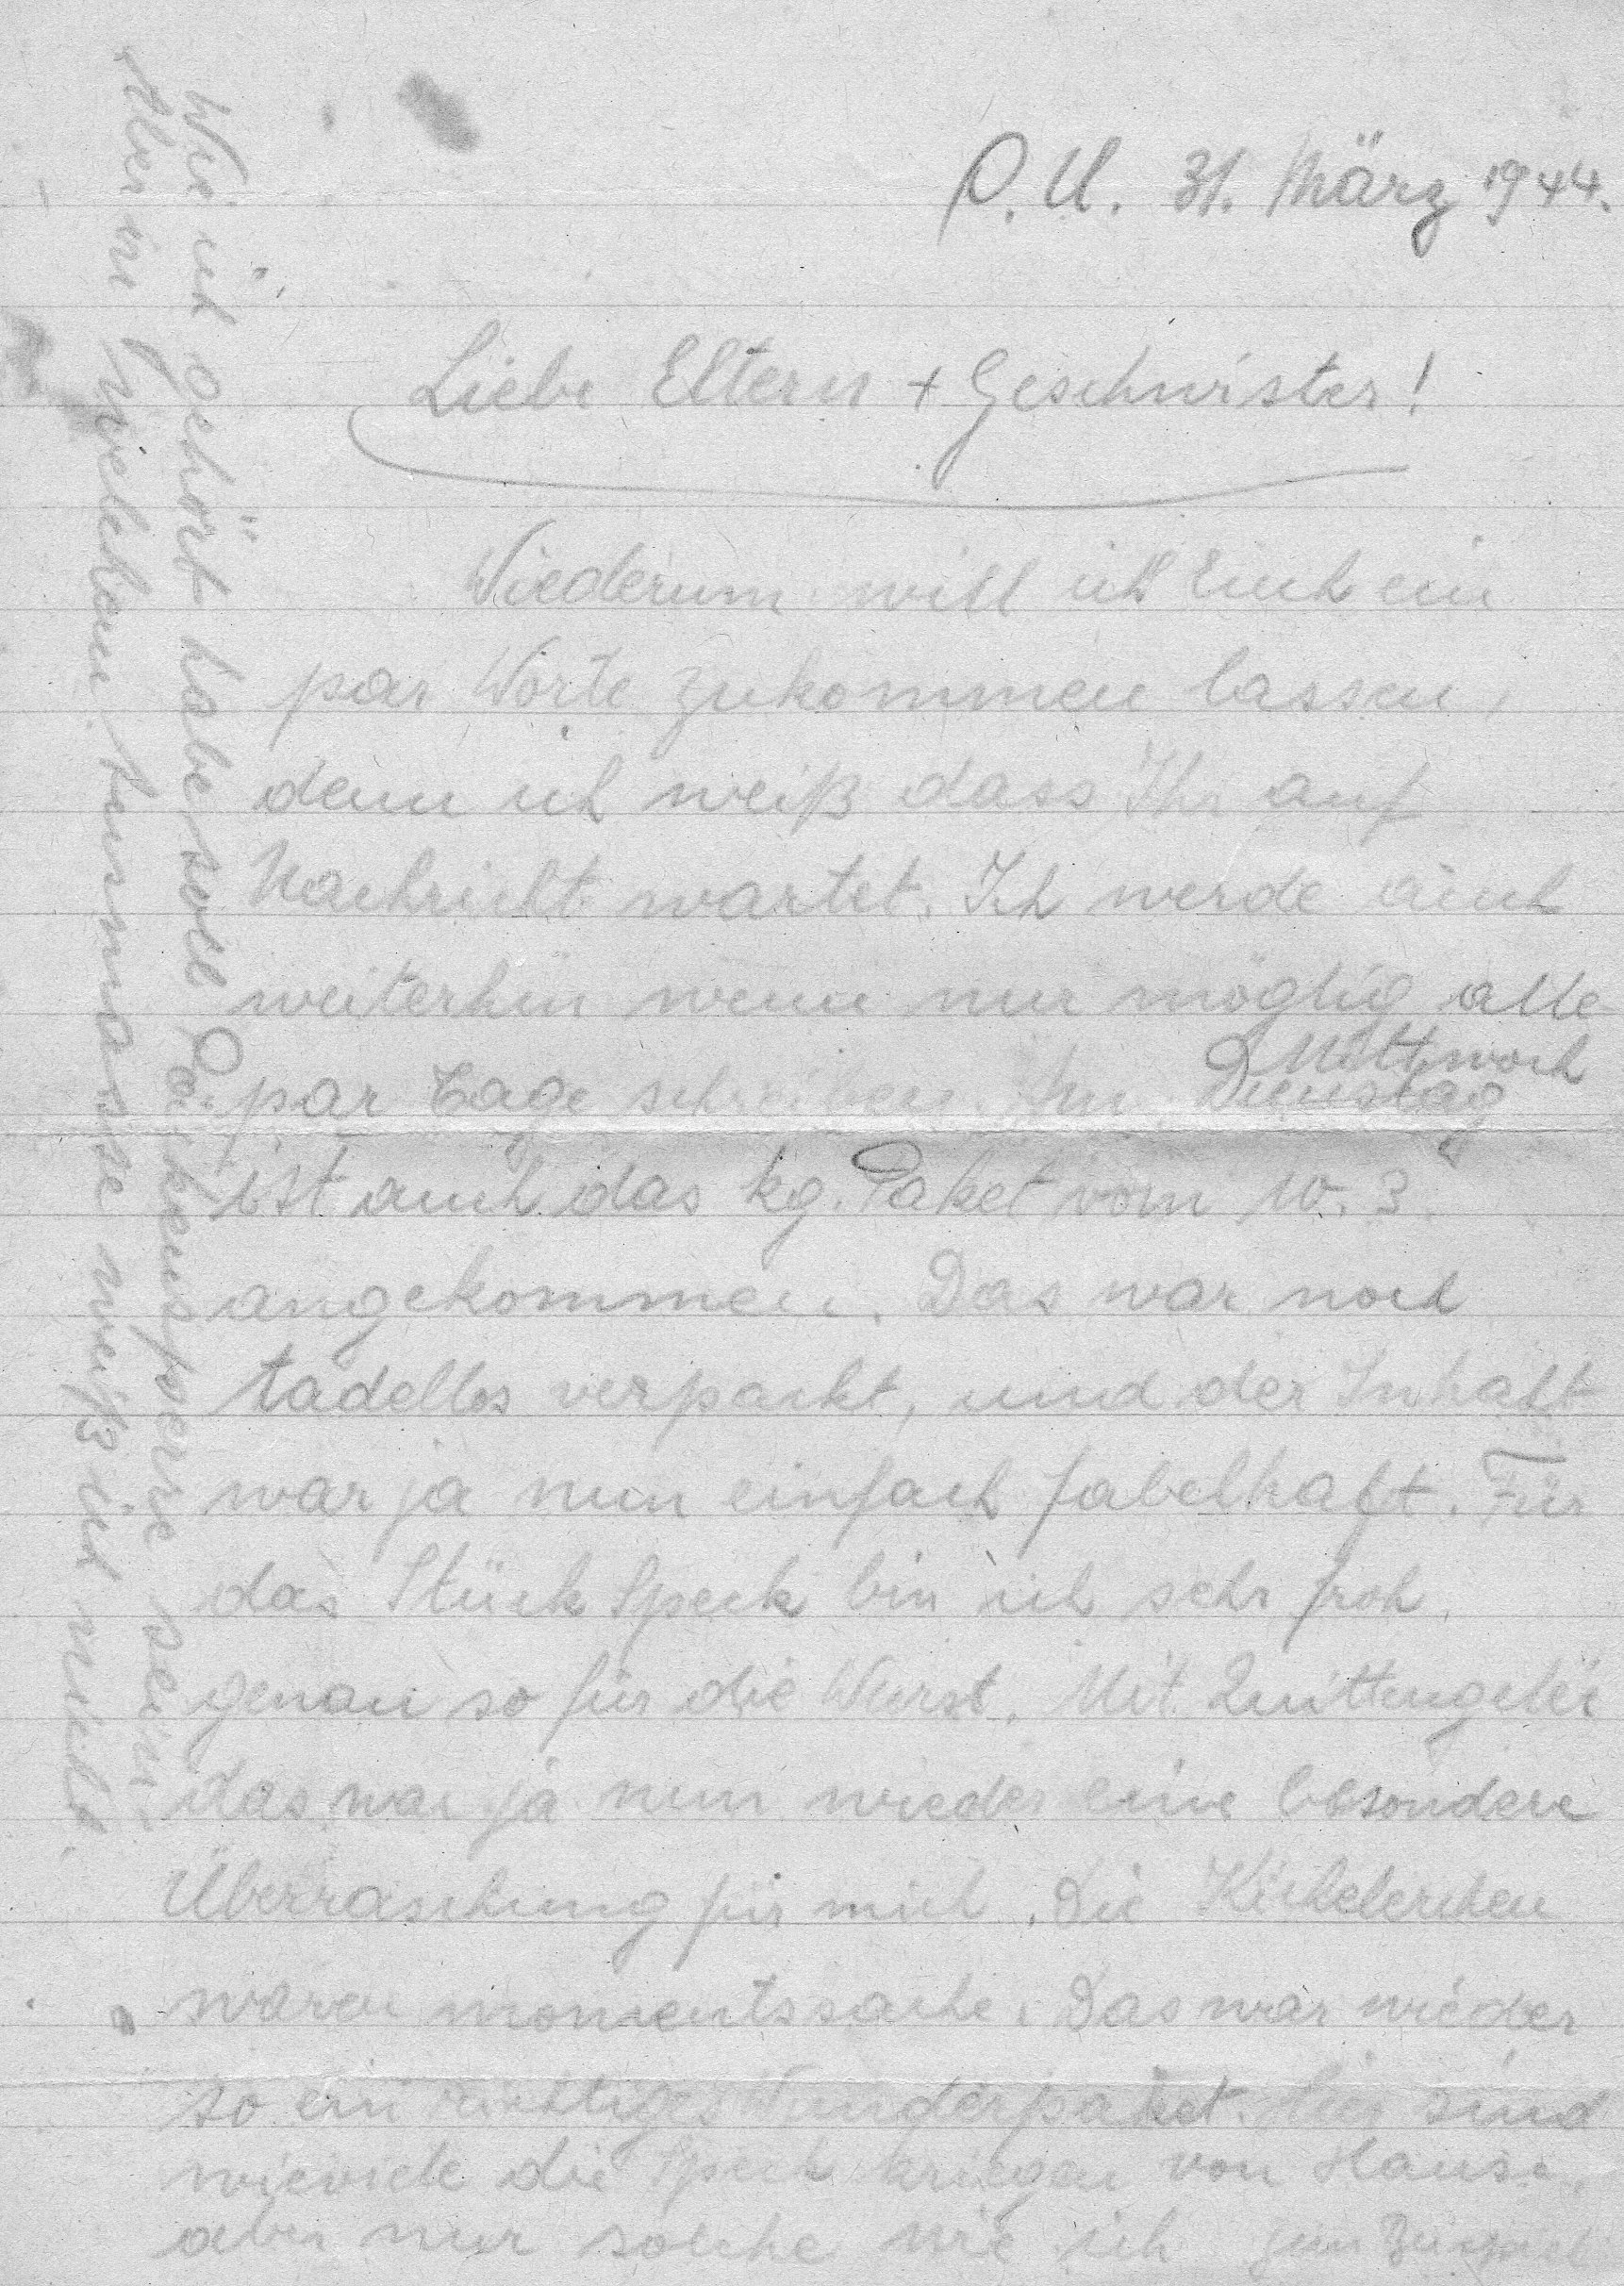 O.U. 31. März 1944.
Liebe Eltern + Geschwister!
Wiederum will ich Euch ein
par Worte zukommen lassen,
denn ich weiß dass Ihr auf
Nachricht wartet. Ich werde auch
weiterhin wenn nur möglig alle
par Tage schreiben. Am Dienstag
Mittwoch
ist auch das kg. Paket vom 10. 3.
angekommen. Das war noch
tadellos verpackt, und der Inhalt
war ja nun einfach fabelhaft. Für
das Stück Speck bin ich sehr froh,
genau so für die Wurst. Mit Quittengeleè
das war ja nun wieder eine besondere
Überraschung für mich. Die
waren momentssache. Das war wieder
so ein richtiges Wunderpaket. Hier sind
wieviele die Speck kriegen von Hause,
aber nur solche wie ich zum Beispiel
Wie ich gehört habe soll Päckchensperre sein.
Aber in welchem Ausmasse weiß ich nicht.